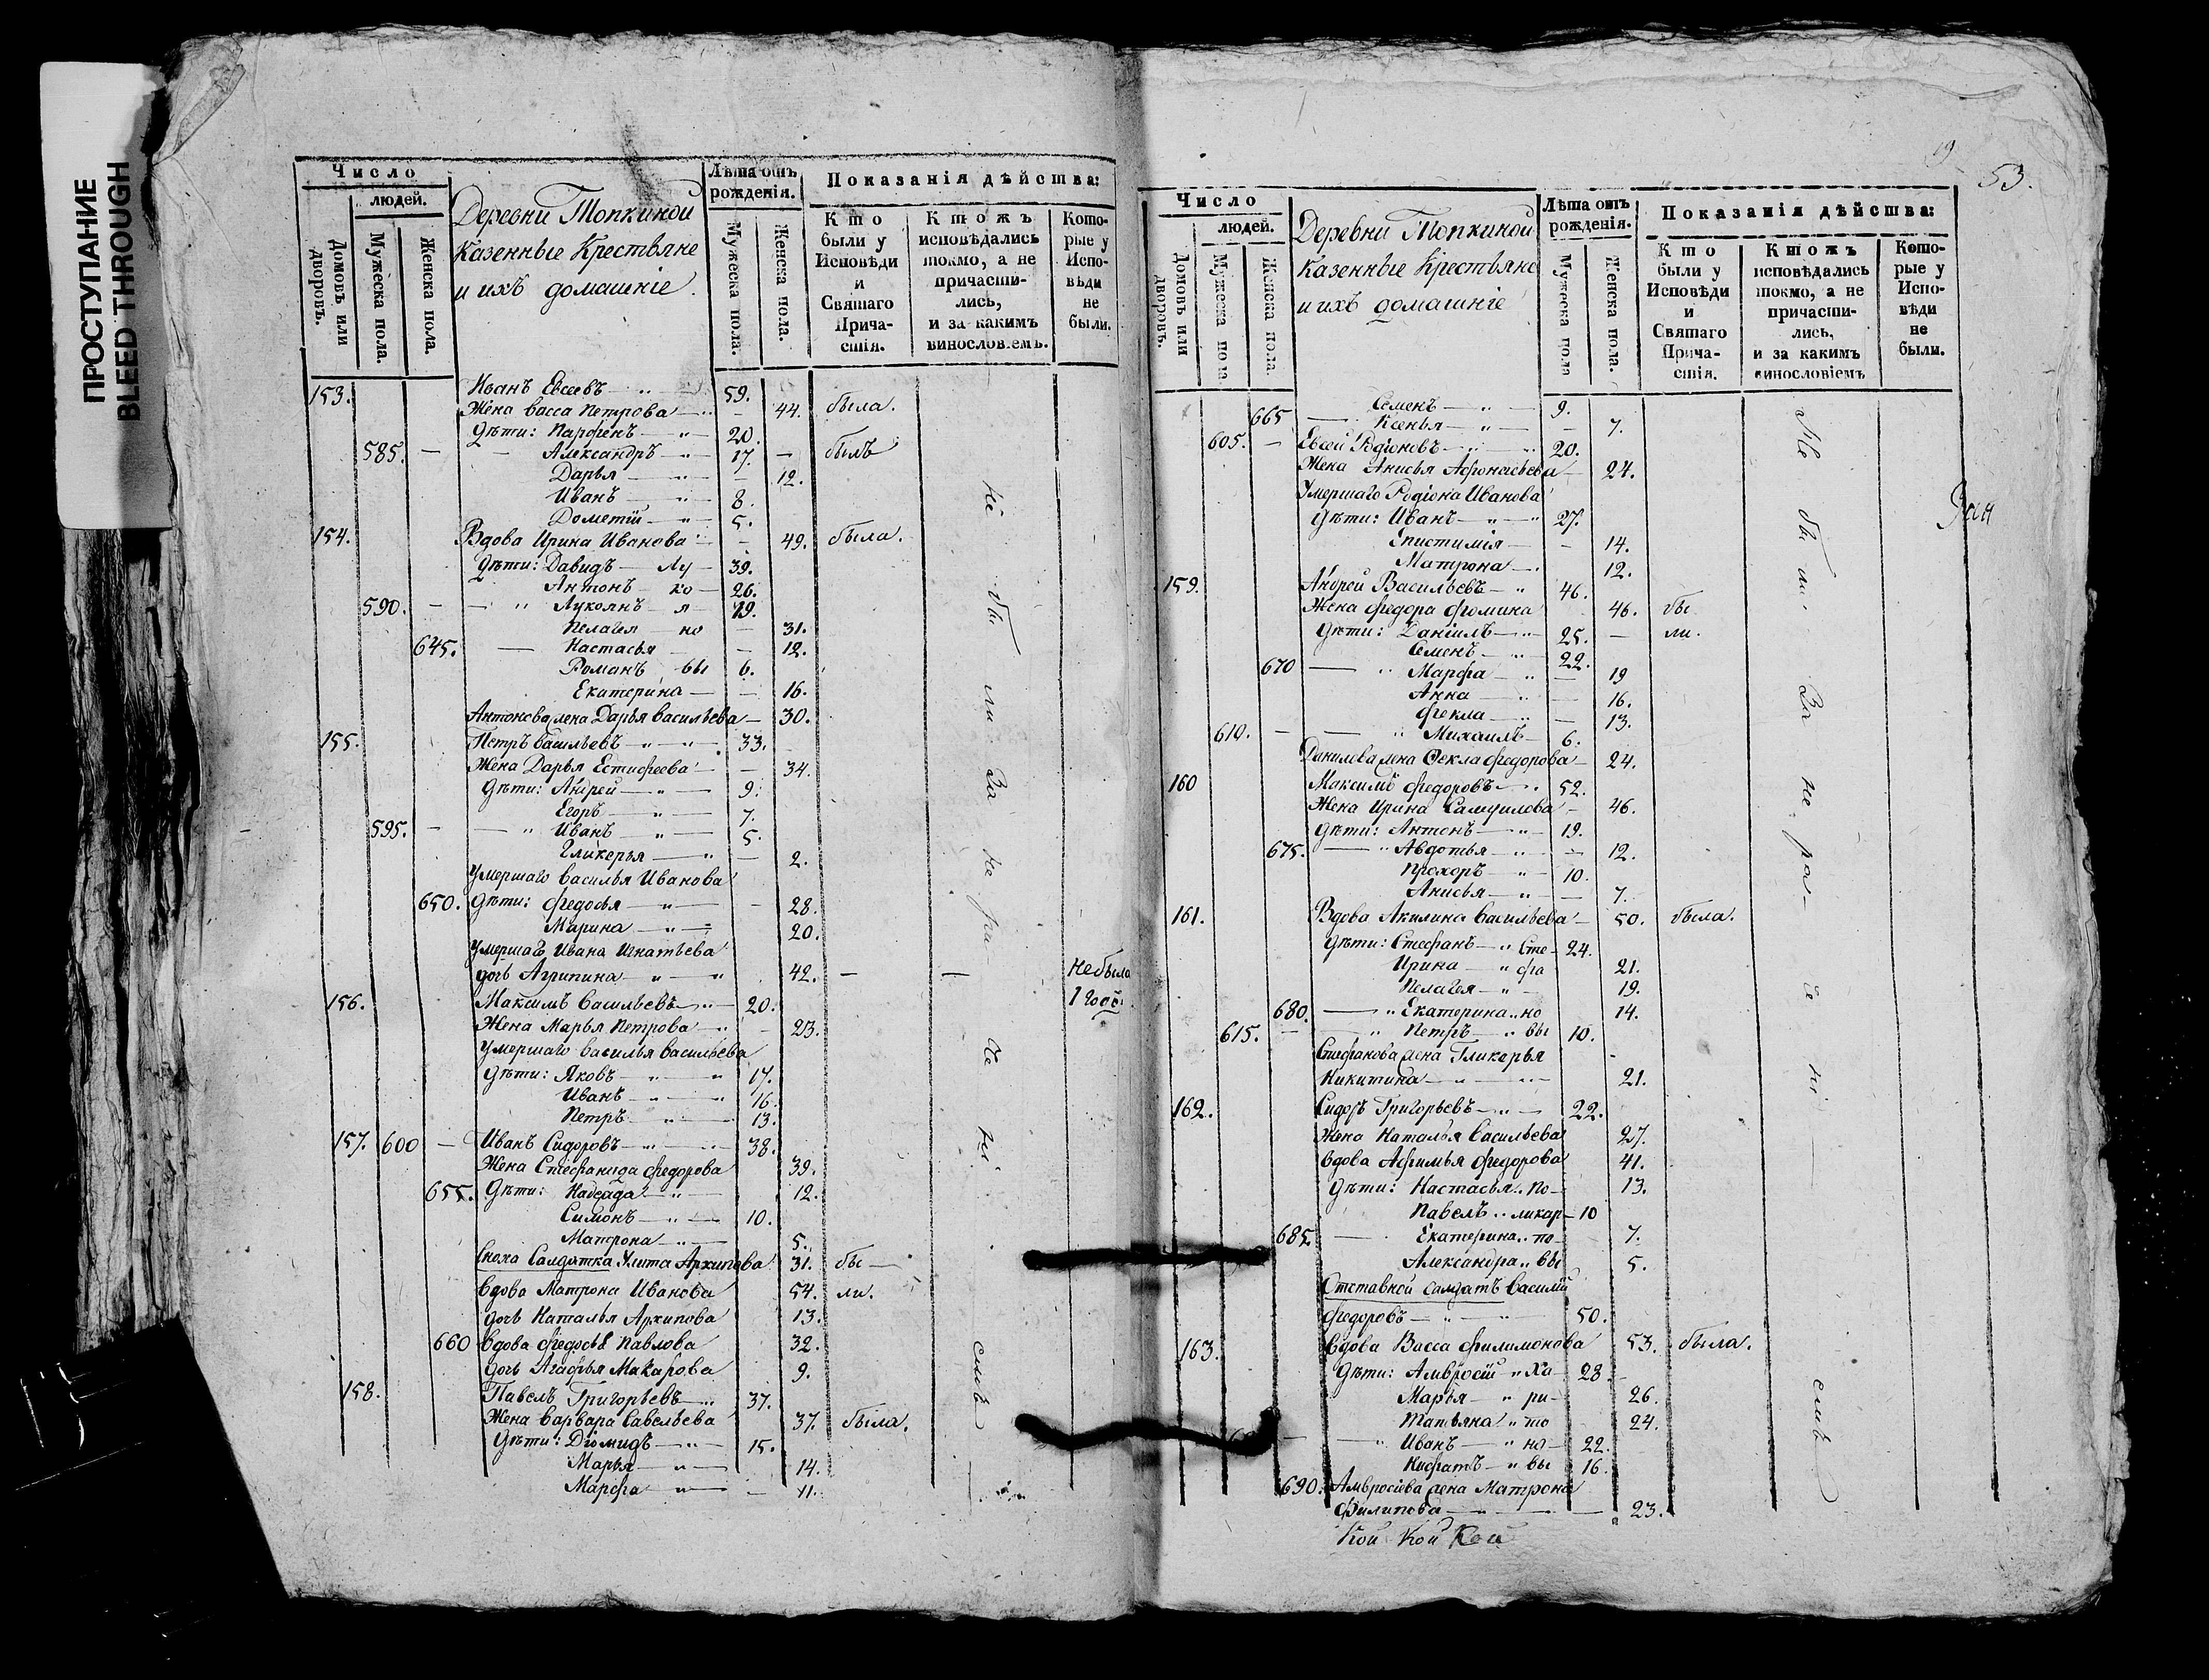 ПРОСТУПАНИЕ
BLEED THROUGH
Число
людей.
Домовъ или дворовъ.
Мужеска пола.
Женска пола.
Деревни Топкиной
Казенные Крестьяне
и ихъ домашніе.
Лѣта отъ рожденія.
Мужеска пола.
Женска пола.
Показанія дѣйства:
Кто были у Исповѣди и Святаго Причастія.
Ктожъ исповѣдались токмо, а не причастились, и за какимъ винословіемъ.
Которые у Исповѣди не были.
153. Иванъ Евсеевъ 59.
Жена Васса Петрова 44. была.
Дѣти: Парфенъ 20.
585. Александръ 17. былъ
Дарья 12.
Иванъ 8.
Дометій 5.
154. Вдова Ирина Иванова 49. была.
Дѣти: Давидъ Лу 39.
Антонъ ко 26.
590. Лукоянъ я 19.
Пелагея но 31.
645. Настасья 12.
Романъ вы 6.
Екатерина 16.
Антонова жена Дарья Васильева 30.
155. Петръ Васильевъ 33.
Жена Дарья Естифеева 34.
Дѣти: Андрей 9.
Егоръ 7.
595. Иванъ 5.
Гликерья 2.
Умершаго Василья Иванова
650. Дѣти: Федосья 28.
Марина 20.
Умершаго Ивана Игнатьева
дочь Агрипина 42. не была
1 годъ.
156. Максимъ Васильевъ 20.
Жена Марья Петрова 23.
Умершаго Василья Васильева
Дѣти: Яковъ 17.
Иванъ 16.
Петръ 13.
157. 600 Иванъ Сидоровъ 38.
Жена Стефанида Федорова 39.
655. Дѣти: Надежда 12.
Симонъ 10.
Матрона 5.
Сноха Салдатка Улита Архипова 31. бы
Вдова Матрона Иванова 54. ли.
дочь Наталья Архипова 13.
660 Вдова Федосья Павлова 32.
дочь Агафья Макарова 9.
158. Павелъ Григорьевъ 37.
Жена Варвара Савельева 37. была.
Дѣти: Діомидъ 15.
Марья 14.
Марфа 11.
не были за не ра че ні емъ
53.
Число
людей.
Домовъ или дворовъ.
Мужеска пола
Женска пола.
Деревни Топкиной
Казенные Крестьяне
и ихъ домашніе
Лѣта отъ рожденія.
Мужеска пола
Женска пола.
Показанія дѣйства:
Кто были у Исповѣди и Святаго Причастія.
Ктожъ исповѣдались токмо, а не причастились, и за какимъ винословіемъ
Которые у Исповѣди не были.
Семенъ 9.
665 Ксенья 7.
605. Евсей Родіоновъ 20.
Жена Анисья Афонасьева 24.
Умершаго Родіона Иванова
Дѣти: Иванъ 27.
Епистимія 14.
Матрона 12.
159. Андрей Васильевъ 46.
Жена Федора Фомина 46. бы
Дѣти: Даніилъ 25. ли.
Семенъ 22.
670 Марфа 19
Анна 16.
Фекла 13.
610. Михаилъ 6.
Данилова жена Фекла Федорова 24.
160 Максимъ Федоровъ 52.
Жена Ирина Самуилова 46.
Дѣти: Антонъ 19.
675. Авдотья 12.
Прохоръ 10.
Анисья 7.
161. Вдова Акилина Васильева 50. была.
Дѣти: Стефанъ Сте 24.
Ирина фа 21.
Пелагея 19.
680. Екатерина но 14.
615. Петръ вы 10.
Стефанова жена Гликерья
Никитина 21.
162. Сидоръ Григорьевъ 22.
Жена Наталья Васильева 27.
Вдова Афимья Федорова 41.
Дѣти: Настасья По 13.
Павелъ ликар 10
685. Екатерина по 7.
Александра вы 5.
Отставной салдатъ Василій
Федоровъ 50.
163. Вдова Васса Филимонова 53. была.
Дѣти: Амвросій Ха 28
Марья ри 26.
Татьяна то 24.
Иванъ но 22.
Кифатъ вы 16.
690. Амвросіева жена Матрона
Филипова 23.
Кой Кой Кой
Не бы ли За не ра че ні емъ